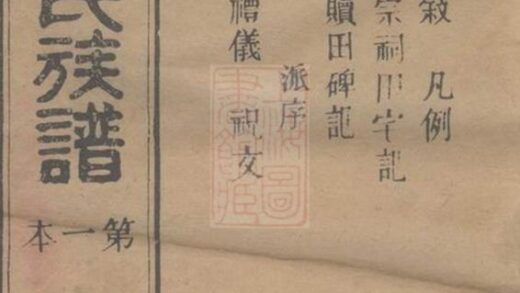 敘 凡例
宗祠記
贖田碑記
派序
禮儀 祝文
氏族譜
第一本